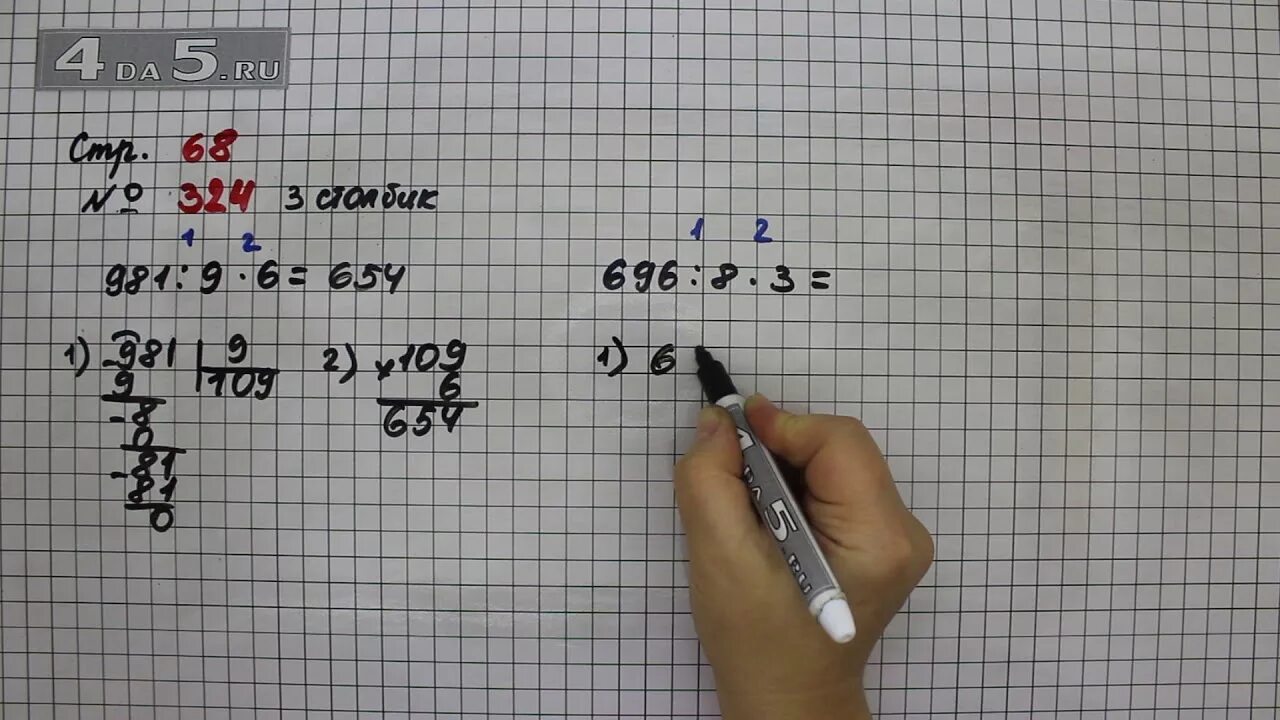 4DA5.RU
Стр. 68
№ 324 3 столбик
1 2
981 : 9 · 6 = 654
1) 981 | 9
- 9 109
- 8
0
- 81
81
0
2) × 109
6
654
1 2
696 : 8 · 3 =
1) 6
4DA5.RU